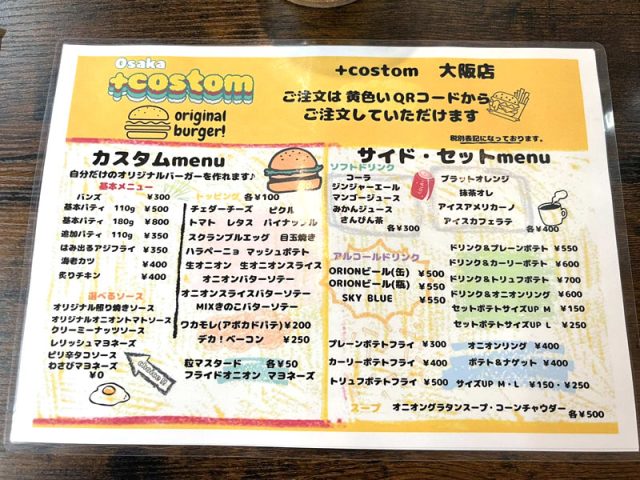 Osaka
+costom
original
burger!
+costom 大阪店
ご注文は 黄色いQRコードから
ご注文していただけます
税別表記になっております。
カスタムmenu
自分だけのオリジナルバーガーを作れます♪
基本メニュー
バンズ ¥300
基本パティ 110g ¥500
基本パティ 180g ¥800
追加パティ 110g ¥350
はみ出るアジフライ ¥350
海老カツ ¥400
炙りチキン ¥400
選べるソース
オリジナル照り焼きソース
オリジナルオニオントマトソース
クリーミーナッツソース
レリッシュマヨネーズ
ピリ辛タコソース
わさびマヨネーズ
¥0
トッピング 各¥100
チェダーチーズ ピクル
トマト レタス パイナップル
スクランブルエッグ 目玉焼き
ハラペーニョ マッシュポテト
生オニオン 生オニオンスライス
オニオンバターソテー
オニオンスライスバターソテー
MIXきのこバターソテー
ワカモレ(アボカドパテ) ¥200
デカ!ベーコン ¥250
粒マスタード 各¥50
フライドオニオン マヨネーズ
サイド・セットmenu
ソフトドリンク
コーラ
ジンジャーエール
マンゴージュース
みかんジュース
さんぴん茶
各¥300
ブラットオレンジ
抹茶オレ
アイスアメリカーノ
アイスカフェラテ
各¥400
アルコールドリンク
ORIONビール(缶) ¥500
ORIONビール(瓶) ¥550
SKY BLUE ¥550
ドリンク&プレーンポテト ¥550
ドリンク&カーリーポテト ¥600
ドリンク&トリュフポテト ¥700
ドリンク&オニオンリング ¥600
セットポテトサイズUP M ¥150
セットポテトサイズUP L ¥250
プレーンポテトフライ ¥300
カーリーポテトフライ ¥400
トリュフポテトフライ ¥500
オニオンリング ¥400
ポテト&ナゲット ¥400
サイズUP M・L ¥150・¥250
スープ オニオングラタンスープ・コーンチャウダー
各¥500